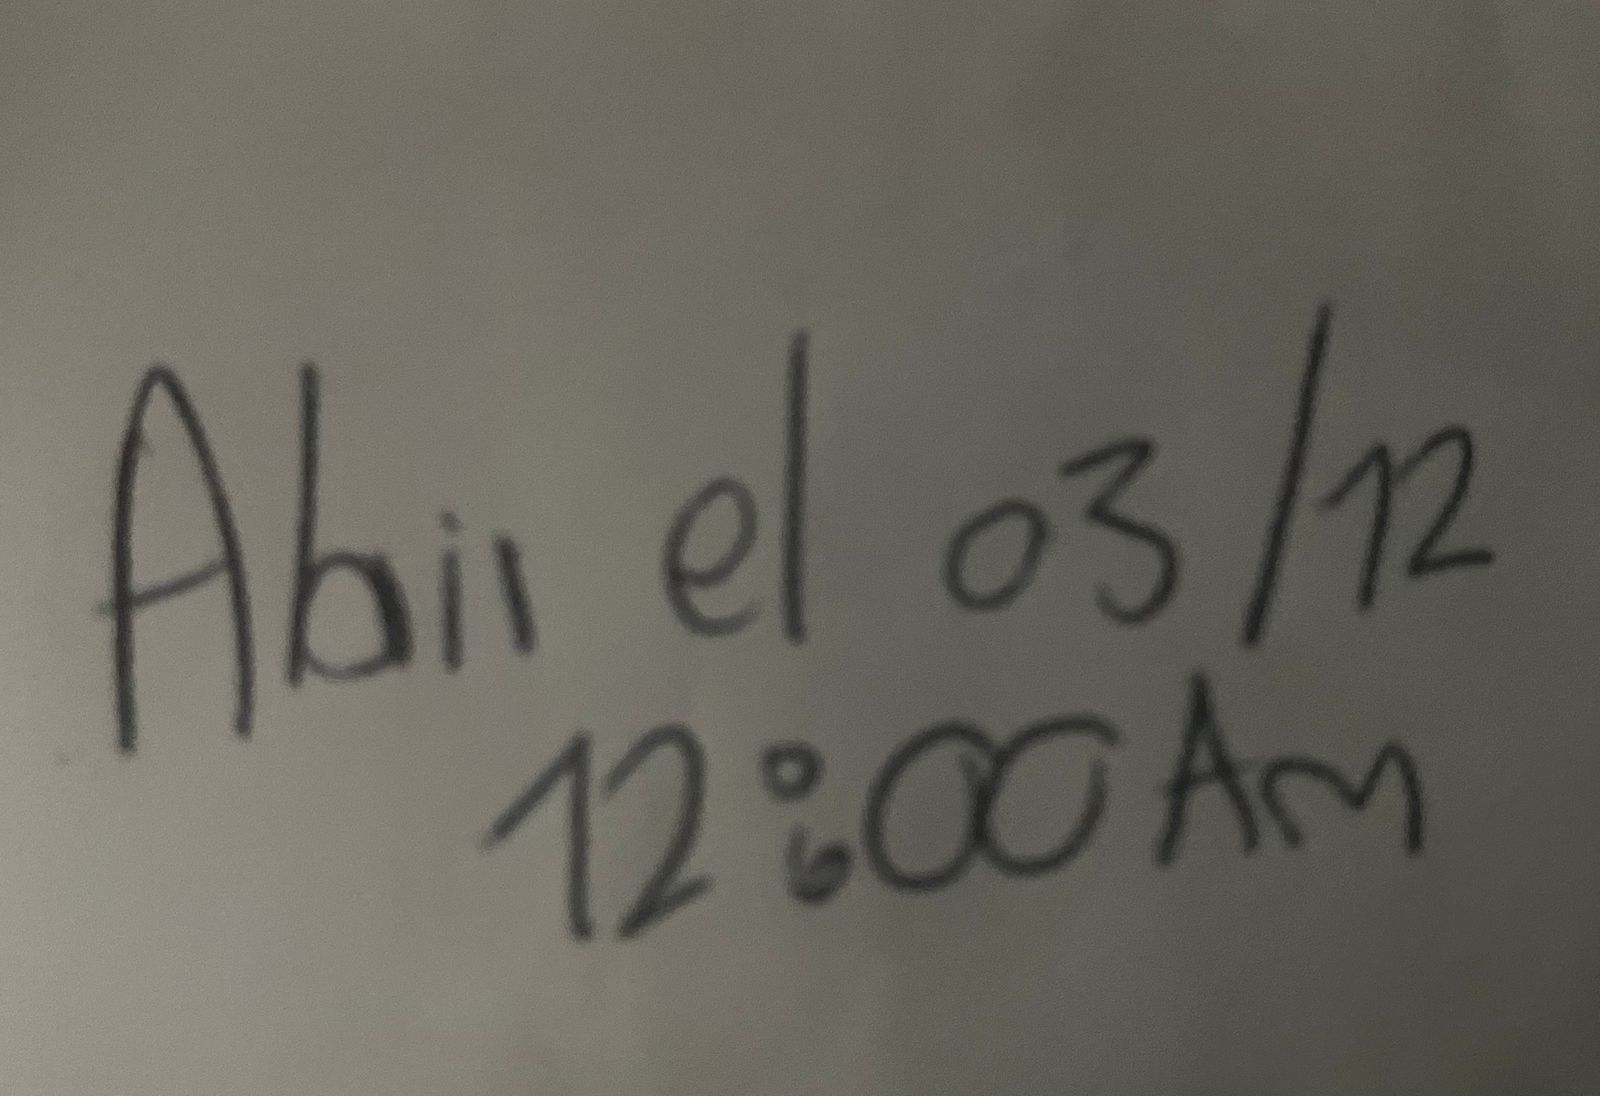 Abrir el 03/12
12:00 Am